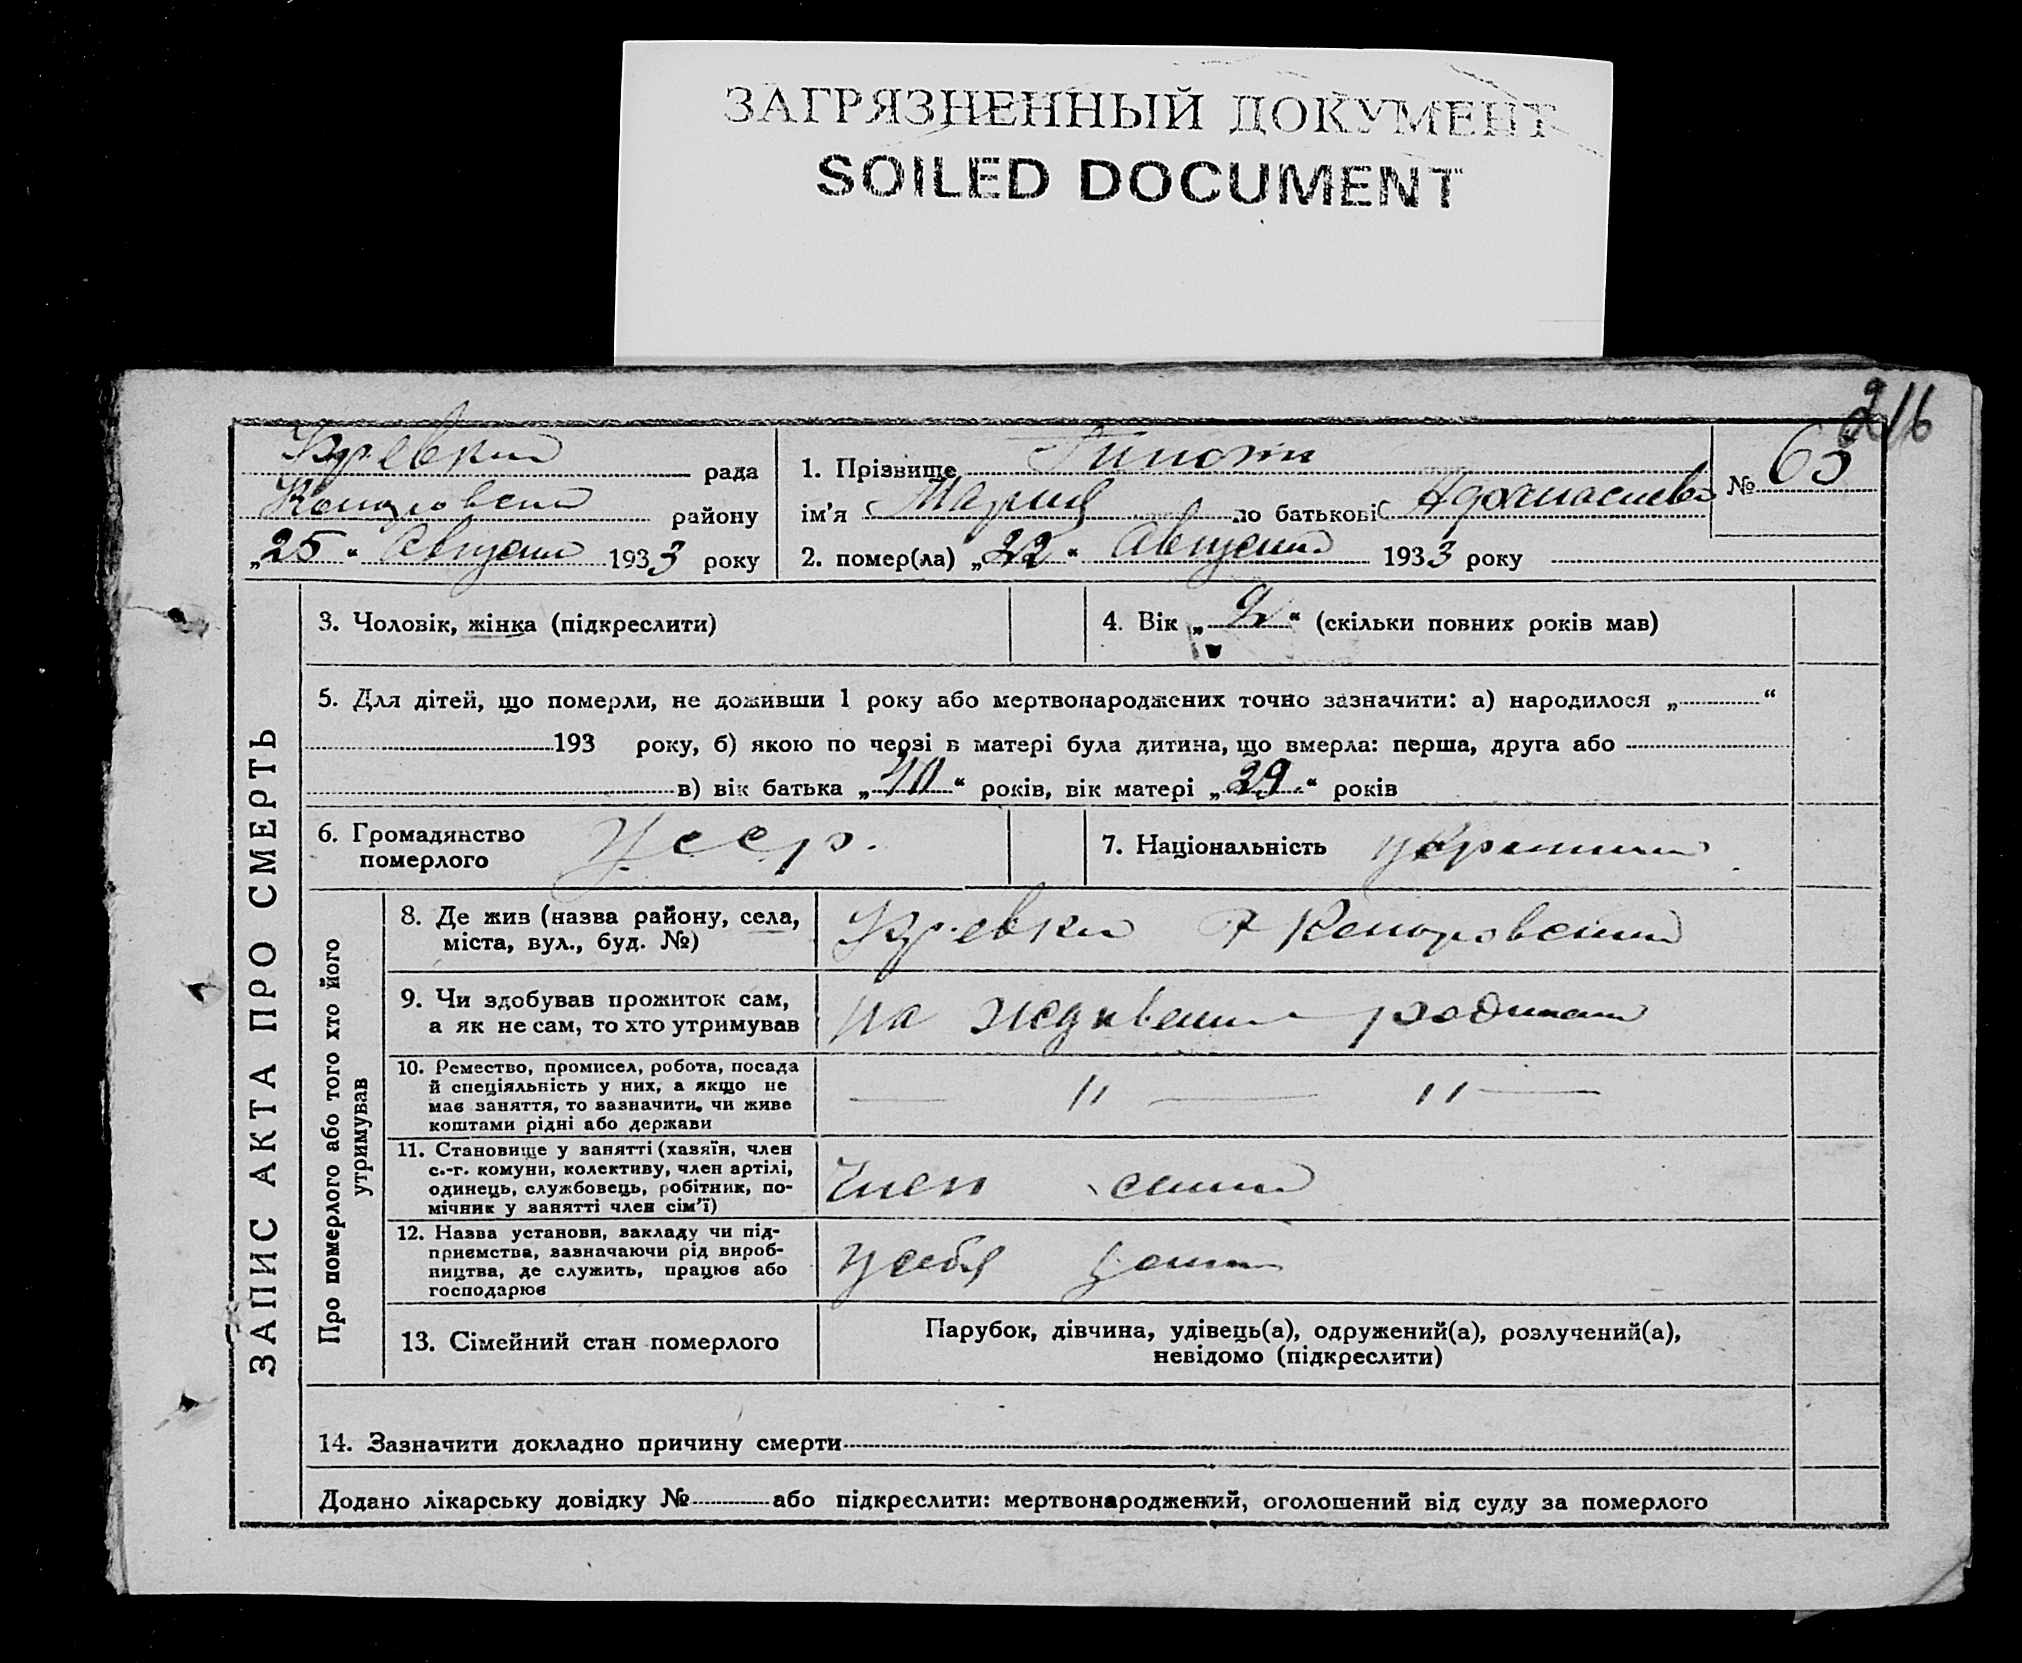 ЗАГРЯЗНЕННЫЙ ДОКУМЕНТ
SOILED DOCUMENT
216
рада
району
„25“ Август 1933 року
1. Прізвище
ім'я Мария по батькові
№ 65
2. помер(ла) „22“ Август 1933 року
ЗАПИС АКТА ПРО СМЕРТЬ
3. Чоловік, жінка (підкреслити)
4. Вік „2“ (скільки повних років мав)
5. Для дітей, що померли, не доживши 1 року або мертвонароджених точно зазначити: а) народилося „ “
193 року, б) якою по черзі в матері була дитина, що вмерла: перша, друга або
в) вік батька „40“ років, вік матері „29“ років
6. Громадянство
померлого
Усср.
7. Національність
Про померлого або того хто його
утримував
8. Де жив (назва району, села,
міста, вул., буд. №)
9. Чи здобував прожиток сам,
а як не сам, то хто утримував
на
10. Ремество, промисел, робота, посада
й спеціяльність у них, а якщо не
має заняття, то зазначити, чи живе
коштами рідні або держави
— " — " —
11. Становище у занятті (хазяїн, член
с.-г. комуни, колективу, член артілі,
одинець, службовець, робітник, по-
мічник у занятті член сім'ї)
член семи
12. Назва установи, закладу чи під-
приємства, зазначаючи рід вироб-
ництва, де служить, працює або
господарює
у себя
13. Сімейний стан померлого
Парубок, дівчина, удівець(а), одружений(а), розлучений(а),
невідомо (підкреслити)
14. Зазначити докладно причину смерти
Додано лікарську довідку № або підкреслити: мертвонароджений, оголошений від суду за померлого